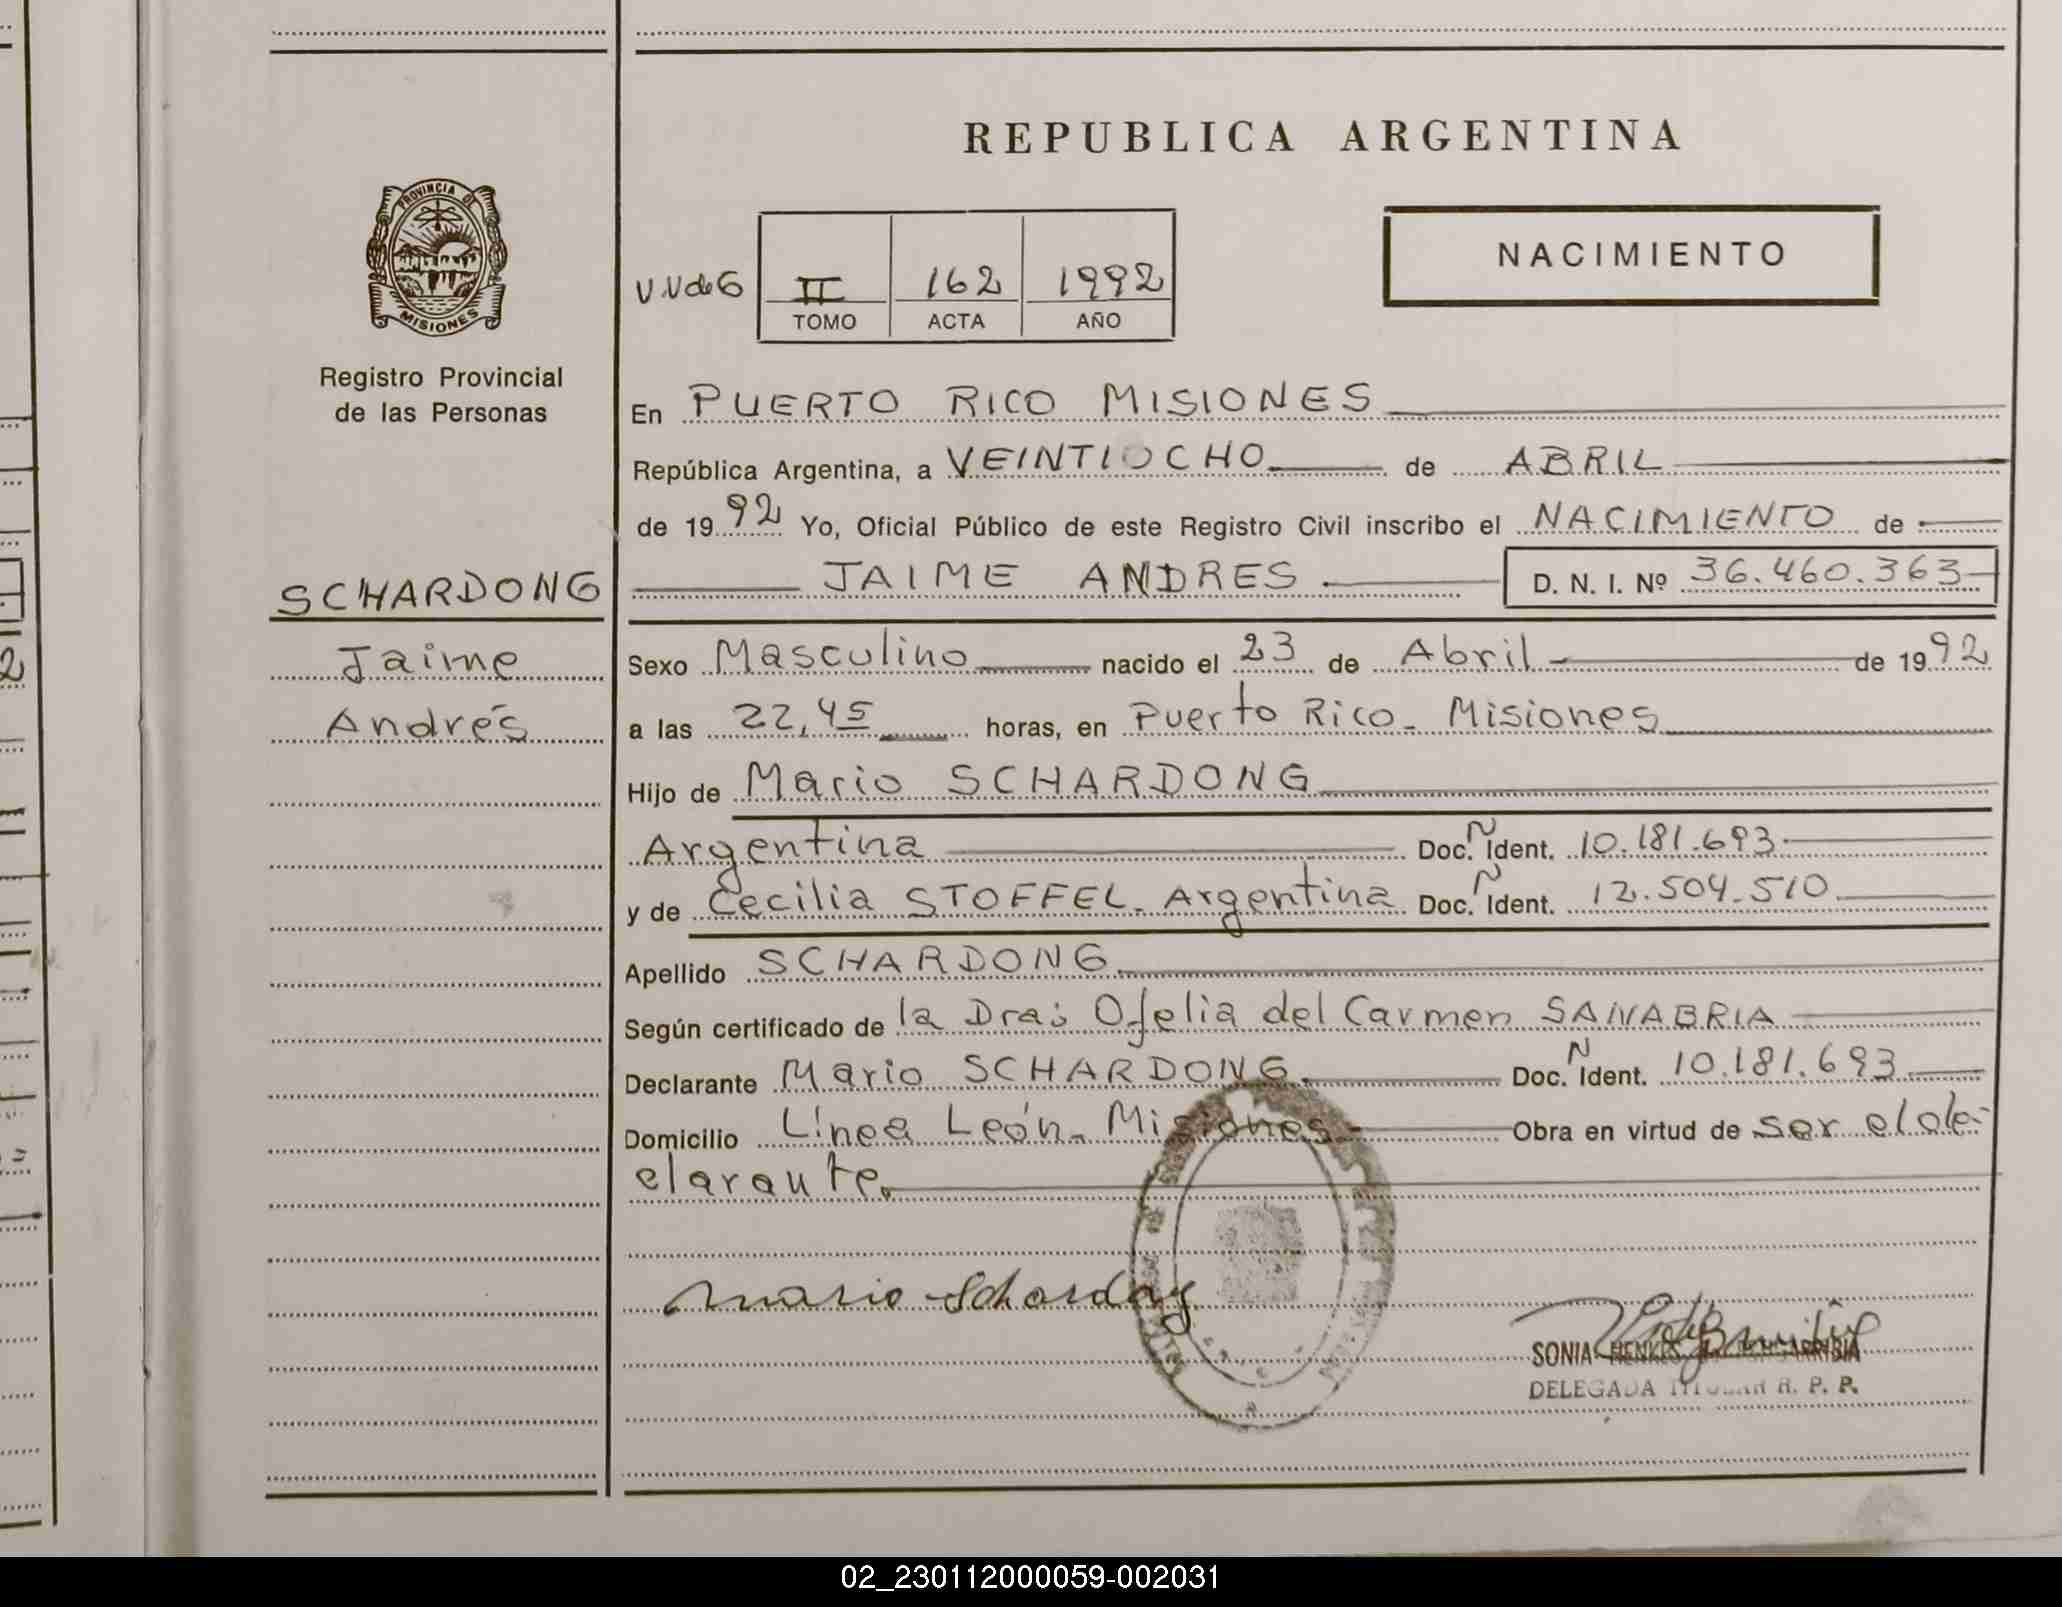 REPUBLICA ARGENTINA
PROVINCIA DE
MISIONES
NACIMIENTO
V.V de G II 162 1992
TOMO ACTA AÑO
Registro Provincial
de las Personas
En PUERTO RICO MISIONES
República Argentina, a VEINTIOCHO de ABRIL
de 1992 Yo, Oficial Público de este Registro Civil inscribo el NACIMIENTO de
SCHARDONG
Jaime
Andrés
JAIME ANDRES D. N. I. Nº 36.460.363
Sexo Masculino nacido el 23 de Abril de 1992
a las 22,45 horas, en Puerto Rico - Misiones
Hijo de Mario SCHARDONG
Argentina Doc. N Ident. 10.181.693
y de Cecilia STOFFEL - Argentina Doc. N Ident. 12.504.510
Apellido SCHARDONG
Según certificado de la Dra; Ofelia del Carmen SANABRIA
Declarante Mario SCHARDONG Doc. N Ident. 10.181.693
Domicilio Línea León - Misiones Obra en virtud de ser el de-
clarante.
Mario Schardong
SONIA
DELEGADA TITULAR R. P. P.
02_230112000059-002031